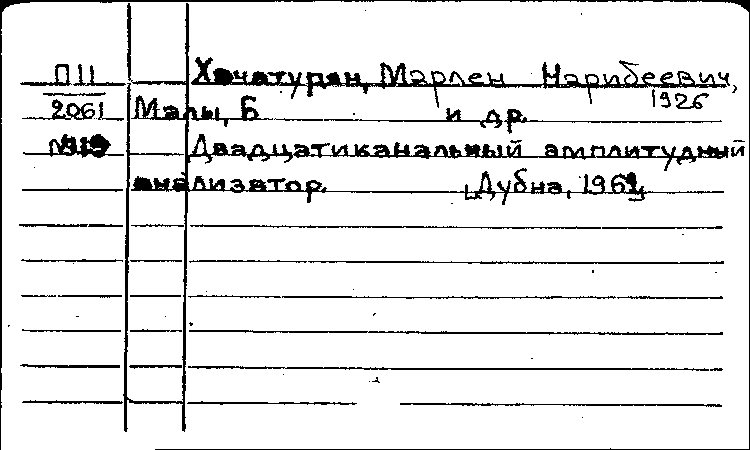 П11 Хачатурян, Марлен Нарибеевич,
2061 Малы, Б и др. 1926
Двадцатиканальный амплитудный
анализатор. Дубна,